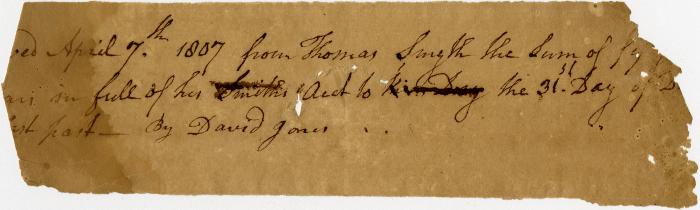 ed April 7.th 1807 from Thomas Smyth the Sum of fif
ars in full of his Smiths Acct to the 31st Day of D
ast past — By David Jones